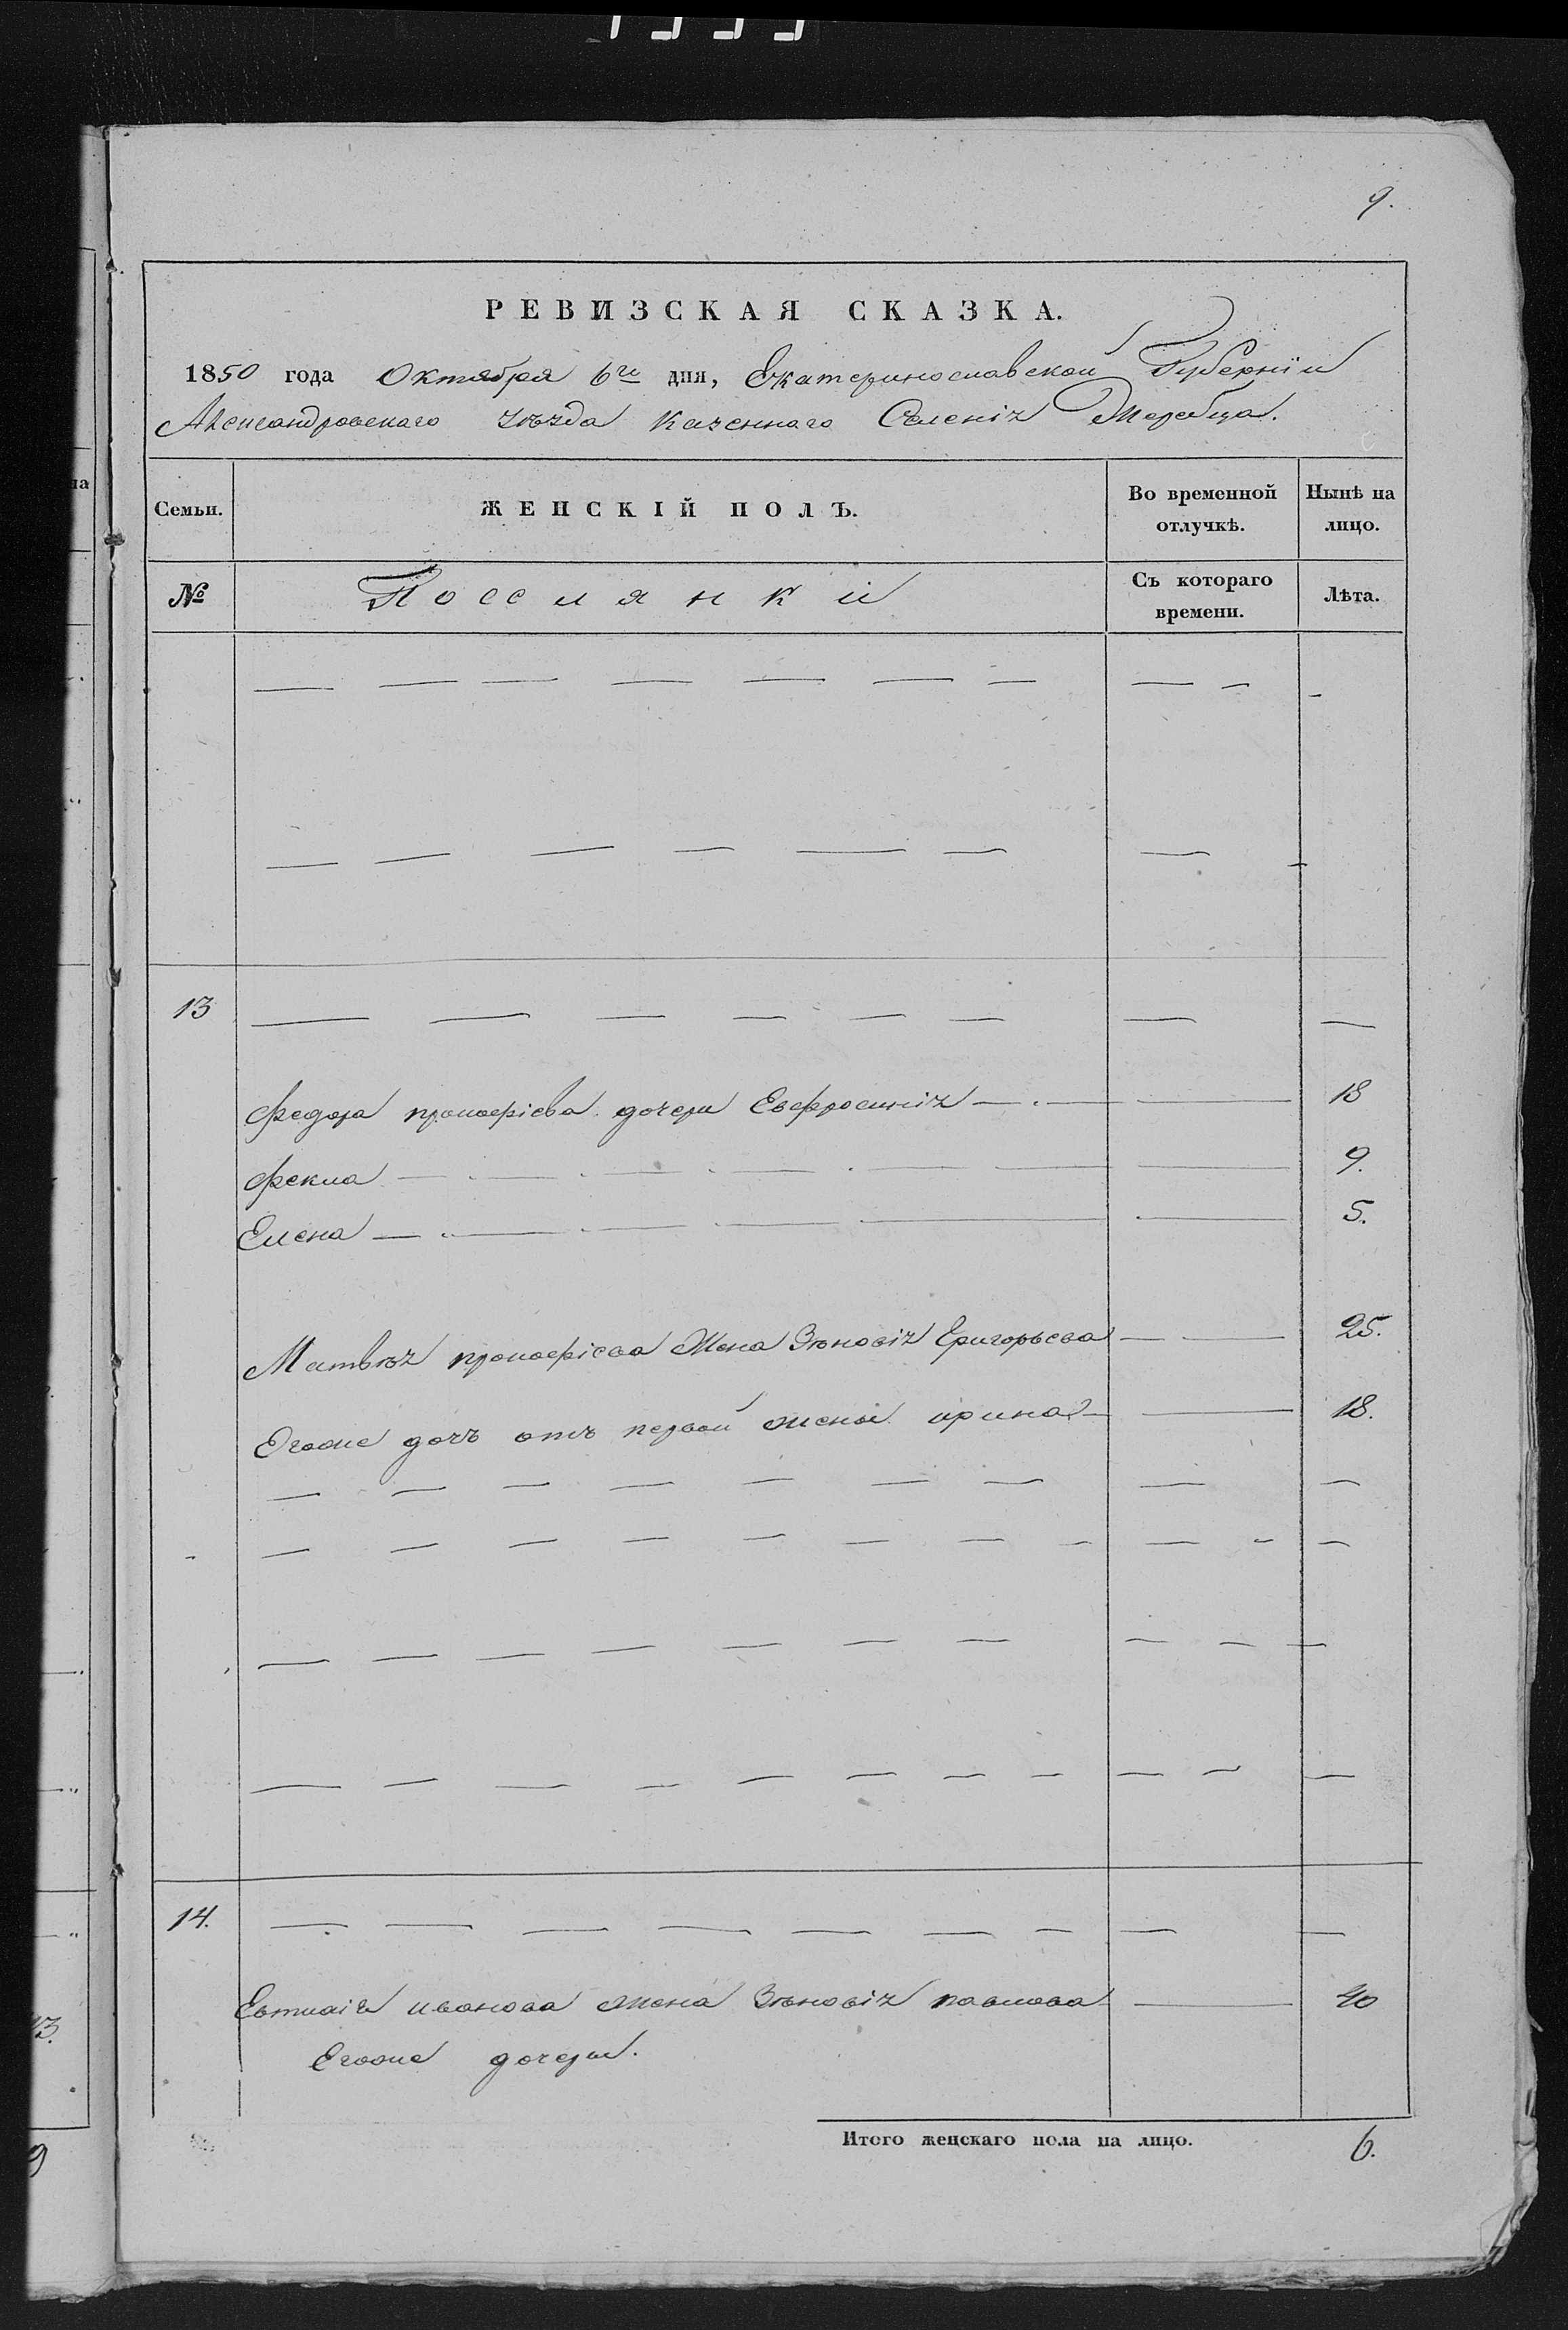 9.
РЕВИЗСКАЯ СКАЗКА.
1850 года Октября 6го дня, Екатеринославской Губерніи
Александровскаго уѣзда Казеннаго Селенія Жеребца.
Семьи. ЖЕНСКІЙ ПОЛЪ. Во временной отлучкѣ. Нынѣ на лицо.
№ Поселянки Съ котораго времени. Лѣта.
13
Федора прокофіева дочери Евфросинія 18
Фекла 9.
Елена 5.
Матвѣя прокофіева Жена Зѣновія Григорьева 25.
Егоже дочъ отъ первой жены ирина 18.
14.
иванова жена Зѣновія павлова 40
Егоже дочери.
Итого женскаго пола на лицо. 6.